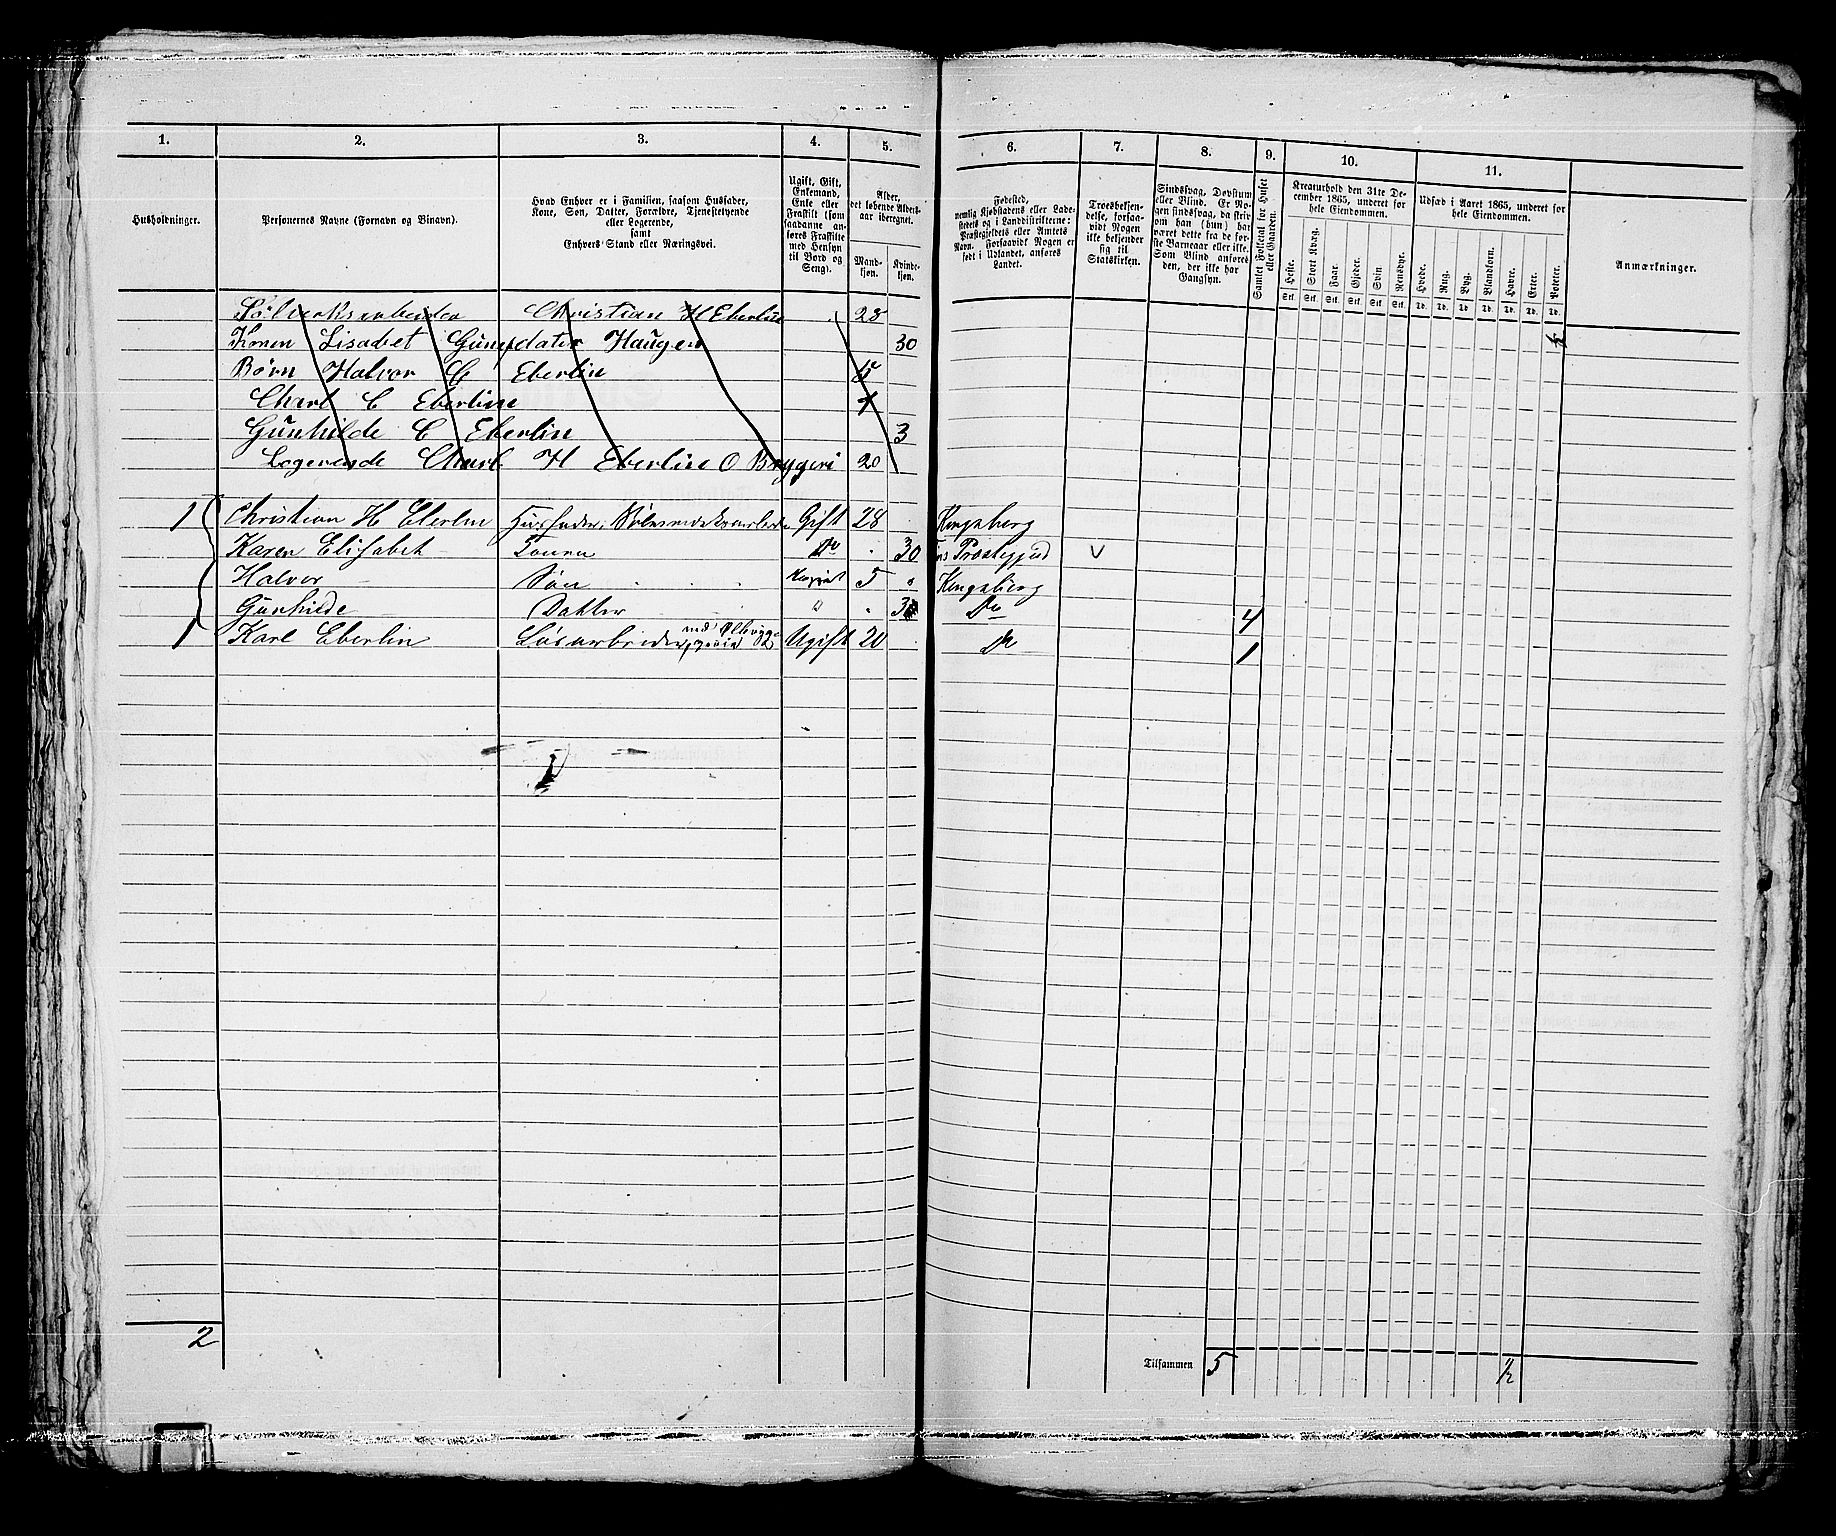 1. 2. 3. 4. 5. 6. 7. 8. 9. 10. 11.
Husholdninger.
Personernes Navne (Fornavn og Binavn).
Hvad Enhver er i Familien, saasom Husfader,
Kone, Søn, Datter, Forældre, Tjenestetyende
eller Logerende,
samt
Enhvers Stand eller Næringsvei.
Ugift, Gift,
Enkemand,
Enke eller
Fraskilt (som
saadanne an-
føres Fraskilte
med Hensyn
til Bord og
Seng).
Alder,
det løbende Alders-
aar iberegnet.
Mand-
kjøn.
Kvinde-
kjøn.
Fødested,
nemlig Kjøbstadens eller Lade-
stedets og i Landdistrikterne:
Præstegjeldets eller Amtets
Navn. Forsaavidt Nogen er
født i Udlandet, anføres
Landet.
Troesbekjen-
delse, forsaa-
vidt Nogen
ikke bekjender
sig til
Statskirken.
Sindssvag, Døvstum
eller Blind. Er No-
gen sindssvag, da skriv
om han (hun) har
været dette fra de før-
ste Barneaar eller ikke.
Som Blind anføres
den, der ikke har
Gangsyn.
Samlet Folketal for Huset
eller Gaarden.
Kreaturhold den 31te De-
cember 1865, underet for
hele Eiendommen.
Heste. Stort Kvæg. Faar. Gjeder. Svin Rensdyr.
Stk. Stk. Stk. Stk. Stk. Stk.
Udsæd i Aaret 1865, underet for
hele Eiendommen.
Hvede. Rug. Byg. Blandkorn. Havre. Erter. Poteter.
Td. Td. Td Td. Td. Td. Td.
Anmærkninger.
Christian H Eberline 28
Konen Lisabet Haugen 30 ½
Børn Halvor C Eberlin 5
Charl C Eberline
Gunhilde C Eberlin 3
Logerende Charl H Eberline O Bryggeri 20
1 Christian H Eberlin Gift 28 Kongsberg
Karen Elisabet Do 30 V
Halvor Søn 5 Kongsberg
Gunhilde Datter 3 Do 4
1 Karl Eberlin Ugift 20 Do 1
2
Tilsammen 5 ½